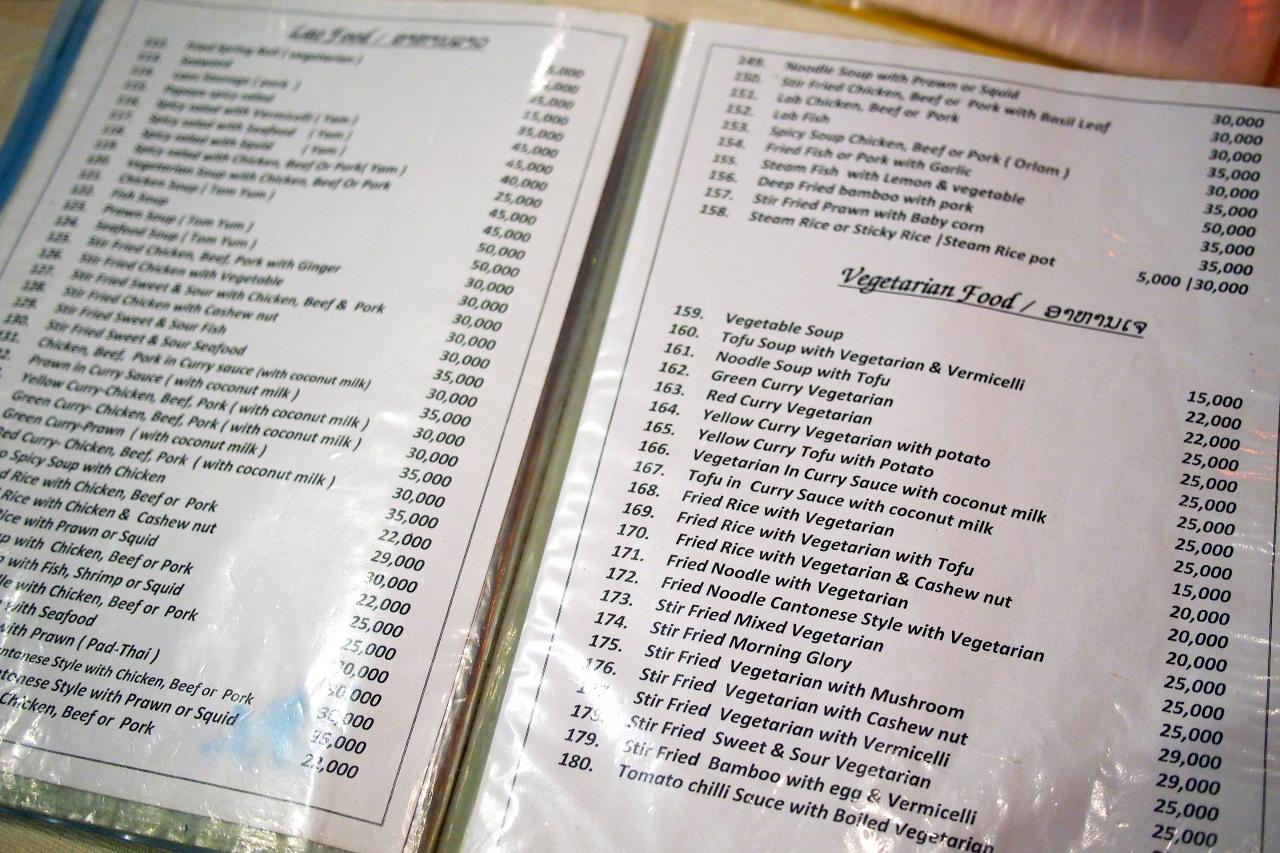 Lao Food / ອາຫານລາວ
112. Fried Spring Roll ( vegetarian ) 5,000
113. Seaweed
114. Laos Sausage ( pork ) 45,000
115. Papaya spicy salad 15,000
116. Spicy salad with Vermicelli ( Yam ) 35,000
117. Spicy salad with Seafood ( Yam ) 45,000
118. Spicy salad with Squid ( Yam ) 45,000
119. Spicy salad with Chicken, Beef Or Pork( Yam ) 40,000
120. Vegetarian Soup with Chicken, Beef Or Pork 25,000
121. Chicken Soup ( Tom Yum ) 45,000
122. Fish Soup 45,000
123. Prawn Soup ( Tom Yum ) 50,000
124. Seafood Soup ( Tom Yum ) 50,000
125. Stir Fried Chicken, Beef, Pork with Ginger 30,000
126. Stir Fried Chicken with Vegetable 30,000
127. Stir Fried Sweet & Sour with Chicken, Beef & Pork 30,000
128. Stir Fried Chicken with Cashew nut 30,000
129. Stir Fried Sweet & Sour Fish 30,000
130. Stir Fried Sweet & Sour Seafood 35,000
131. Chicken, Beef, Pork in Curry sauce (with coconut milk) 30,000
Prawn in Curry Sauce ( with coconut milk ) 35,000
Yellow Curry-Chicken, Beef, Pork ( with coconut milk ) 30,000
Green Curry- Chicken, Beef, Pork ( with coconut milk ) 30,000
Green Curry-Prawn ( with coconut milk ) 35,000
Red Curry- Chicken, Beef, Pork ( with coconut milk ) 30,000
Spicy Soup with Chicken 35,000
Rice with Chicken, Beef or Pork 22,000
Rice with Chicken & Cashew nut 29,000
Rice with Prawn or Squid 30,000
with Chicken, Beef or Pork 22,000
with Fish, Shrimp or Squid 25,000
with Chicken, Beef or Pork 25,000
with Seafood 30,000
with Prawn ( Pad-Thai ) 30,000
Cantonese Style with Chicken, Beef or Pork 30,000
Cantonese Style with Prawn or Squid 35,000
Chicken, Beef or Pork 23,000
149. Noodle Soup with Prawn or Squid 30,000
150. Stir Fried Chicken, Beef or Pork with Basil Leaf 30,000
151. Lab Chicken, Beef or Pork 30,000
152. Lab Fish 35,000
153. Spicy Soup Chicken, Beef or Pork ( Orlam ) 30,000
154. Fried Fish or Pork with Garlic 35,000
155. Steam Fish with Lemon & vegetable 50,000
156. Deep Fried bamboo with pork 35,000
157. Stir Fried Prawn with Baby corn 35,000
158. Steam Rice or Sticky Rice |Steam Rice pot 5,000 |30,000
Vegetarian Food / ອາຫານເຈ
159. Vegetable Soup 15,000
160. Tofu Soup with Vegetarian & Vermicelli 22,000
161. Noodle Soup with Tofu 22,000
162. Green Curry Vegetarian 25,000
163. Red Curry Vegetarian 25,000
164. Yellow Curry Vegetarian with potato 25,000
165. Yellow Curry Tofu with Potato 25,000
166. Vegetarian In Curry Sauce with coconut milk 25,000
167. Tofu in Curry Sauce with coconut milk 25,000
168. Fried Rice with Vegetarian 15,000
169. Fried Rice with Vegetarian with Tofu 20,000
170. Fried Rice with Vegetarian & Cashew nut 20,000
171. Fried Noodle with Vegetarian 20,000
172. Fried Noodle Cantonese Style with Vegetarian 25,000
173. Stir Fried Mixed Vegetarian 25,000
174. Stir Fried Morning Glory 25,000
175. Stir Fried Vegetarian with Mushroom 29,000
176. Stir Fried Vegetarian with Cashew nut 29,000
177. Stir Fried Vegetarian with Vermicelli 25,000
178. Stir Fried Sweet & Sour Vegetarian 25,000
179. Stir Fried Bamboo with egg & Vermicelli
180. Tomato chilli Sauce with Boiled Vegetarian